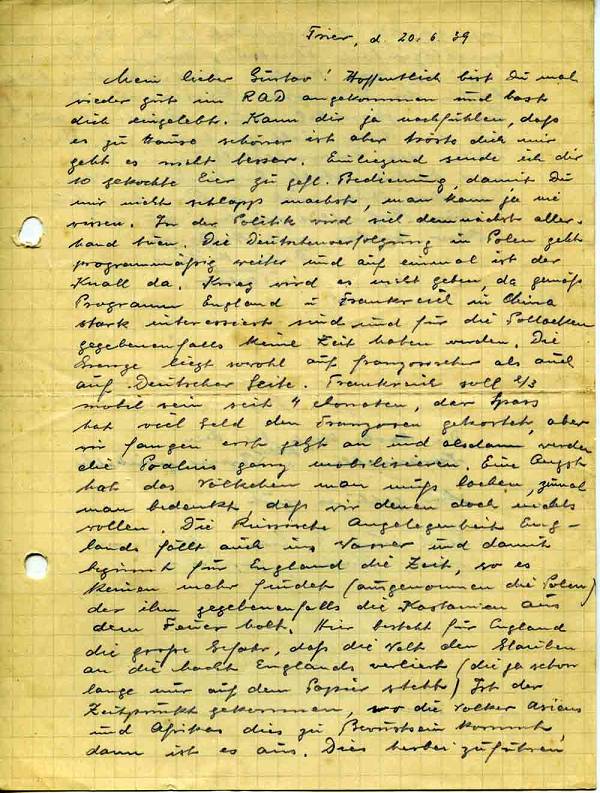 Trier, d. 20. 6. 39
Mein lieber Gustav! Hoffentlich bist Du mal
wieder gut im RAD angekommen und hast
dich eingelebt. Kann dir ja nachfühlen, daß
es zu Hause schöner ist aber tröste dich mir
geht es nicht besser. Einliegend sende ich dir
10 gekochte Eier zu gefl. Bedienung, damit Du
mir nicht schlapp machst, man kann ja nie
wissen. In der Politik wird sich demnächst aller-
hand tuen. Die Deutschenverfolgung in Polen geht
programmäßig weiter und auf einmal ist der
Knall da. Krieg wird es nicht geben, da gemäß
Programm England u Frankreich in China
stark interessiert sind und für die Pollacken
gegebenenfalls keine Zeit haben werden. Die
liegt sowohl auf französischer als auch
auf Deutscher Seite. Frankreich soll 2/3
mobil sein seit 4 Monaten, der Spass
hat viel Geld den Franzosen gekostet, aber
wir fangen erst jetzt an und alsdann werden
die ganz mobilisieren. Eine Angst
hat das Völkchen man muß lachen, zumal
man bedenkt, daß wir denen doch nichts
wollen. Die Russische Angelegenheit Eng-
lands fällt auch ins Wasser und damit
beginnt für England die Zeit, wo es
keinen mehr findet (ausgenommen die Polen)
der ihm gegebenenfalls die Kastanien aus
dem Feuer holt. Hier besteht für England
die große Gefahr, daß die Welt den Glauben
an die Macht Englands verliert (die ja schon
lange nur auf dem Papier steht) Ist der
Zeitpunkt gekommen, wo die Völker Asiens
und Afrikas dies zu Bewustsein kommt,
dann ist es aus. Dies herbei zuführen